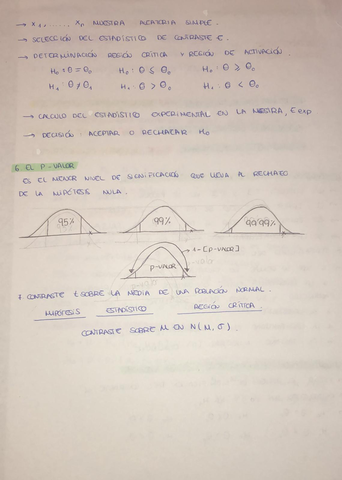 → x₁, ......, xₙ MUESTRA ALEATORIA SIMPLE.
→ SELECCIÓN DEL ESTADÍSTICO DE CONTRASTE C.
→ DETERMINACIÓN REGIÓN CRÍTICA Y REGIÓN DE ACTIVACIÓN.
H₀ : θ = θ₀ H₀ : θ ≤ θ₀ H₀ : θ ≥ θ₀
H₁ θ ≠ θ₀ H₁ : θ > θ₀ H₁ : θ < θ₀
→ CALCULO DEL ESTADÍSTICO EXPERIMENTAL EN LA MUESTRA, exp
→ DECISIÓN: ACEPTAR O RECHAZAR H₀
6. EL P-VALOR
ES EL MENOR NIVEL DE SIGNIFICACIÓN QUE LLEVA AL RECHAZO
DE LA HIPÓTESIS NULA.
95% 99% 99'99%
1-[P-VALOR]
P-VALOR
CONTRASTE t SOBRE LA MEDIA DE UNA POBLACIÓN NORMAL.
HIPÓTESIS ESTADÍSTICO REGIÓN CRÍTICA.
CONTRASTE SOBRE M EN N(M, σ)